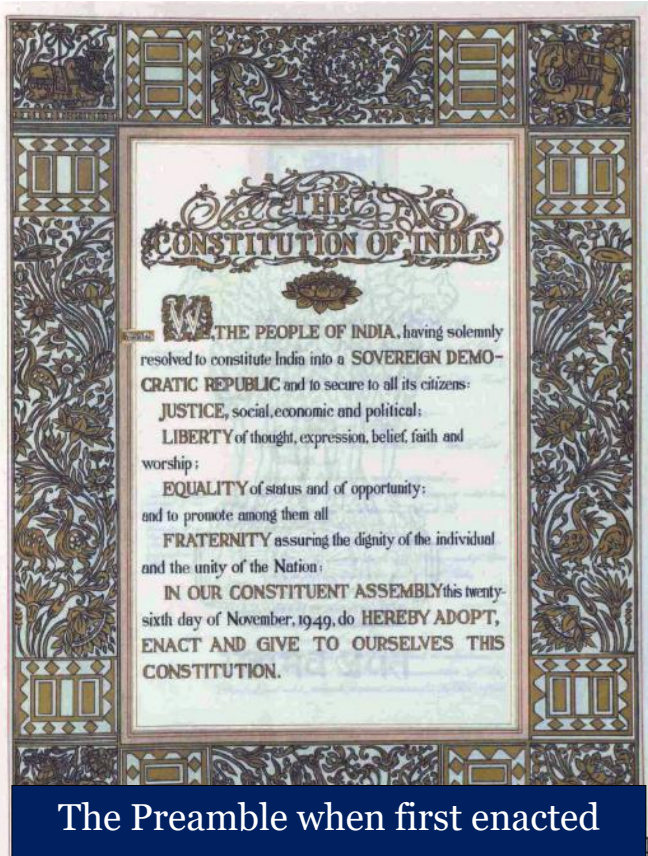 THE
CONSTITUTION OF INDIA
WE, THE PEOPLE OF INDIA, having solemnly
resolved to constitute India into a SOVEREIGN DEMO-
CRATIC REPUBLIC and to secure to all its citizens:
JUSTICE, social, economic and political;
LIBERTY of thought, expression, belief, faith and
worship;
EQUALITY of status and of opportunity;
and to promote among them all
FRATERNITY assuring the dignity of the individual
and the unity of the Nation;
IN OUR CONSTITUENT ASSEMBLY this twenty-
sixth day of November, 1949, do HEREBY ADOPT,
ENACT AND GIVE TO OURSELVES THIS
CONSTITUTION.
The Preamble when first enacted